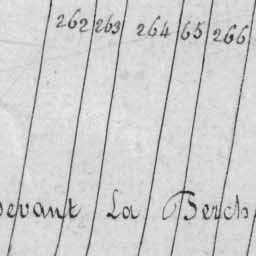 262 263 264 65 266
devant La Berch